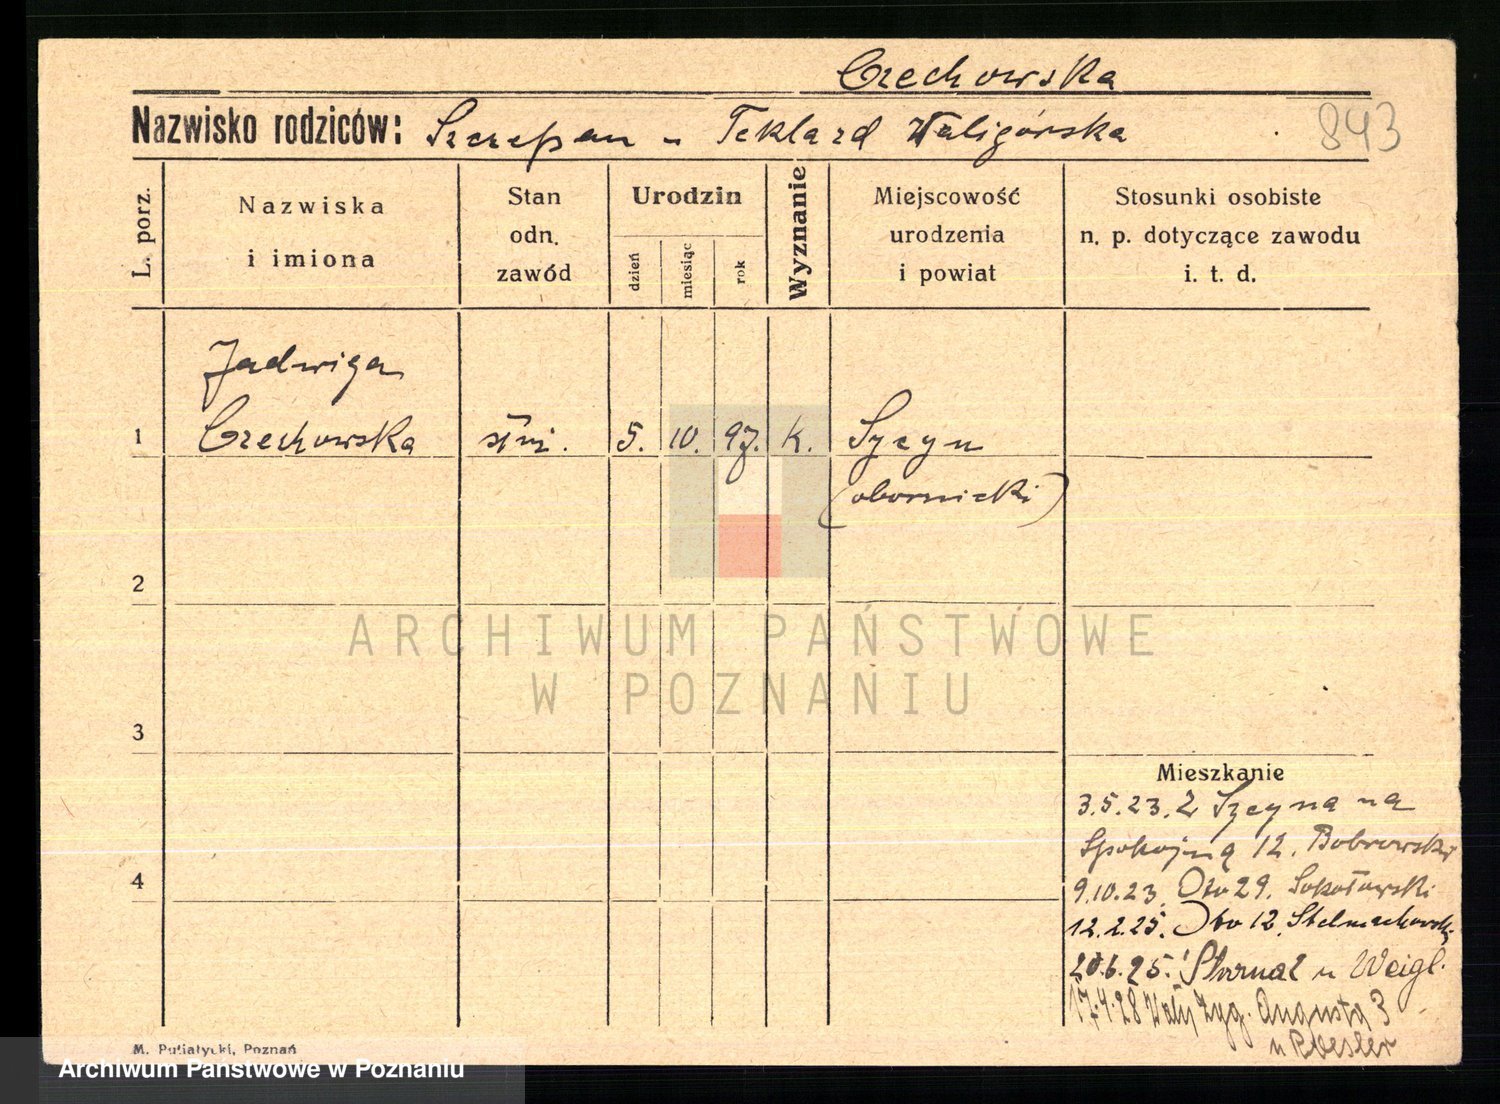 Czechowska
Nazwisko rodziców: Szczepan - Tekla zd Waligórska
843
L. porz.
Nazwiska i imiona
Stan odn. zawód
Urodzin
dzień
miesiąc
rok
Wyznanie
Miejscowość urodzenia i powiat
Stosunki osobiste n. p. dotyczące zawodu i. t. d.
Jadwiga
1 Czechowska służ. 5. 10. 97. k.
(obornicki)
2
ARCHIWUM PAŃSTWOWE
W POZNANIU
3
Mieszkanie
3.5.23. Z na
Spokojną 12. Bobrowski
4
9.10.23. 29. Sokołowski
12.2.25. 12. Stelmachowski
20.6.25. u Weigl.
17.4.28 Wały Zyg. Augusta 3
u Roesler
M. Putiatycki, Poznań
Archiwum Państwowe w Poznaniu